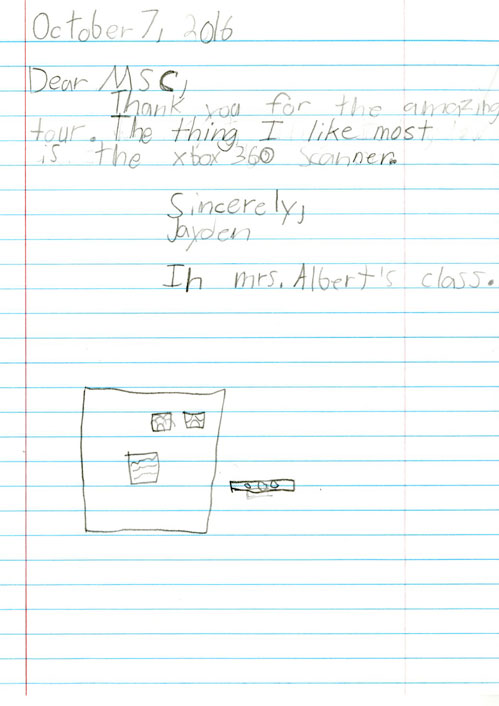 October 7, 2016
Dear MSC,
Thank you for the amazing
tour. The thing I like most
is the xbox 360 scanner.
Sincerely,
Jayden
In mrs. Albert's class.